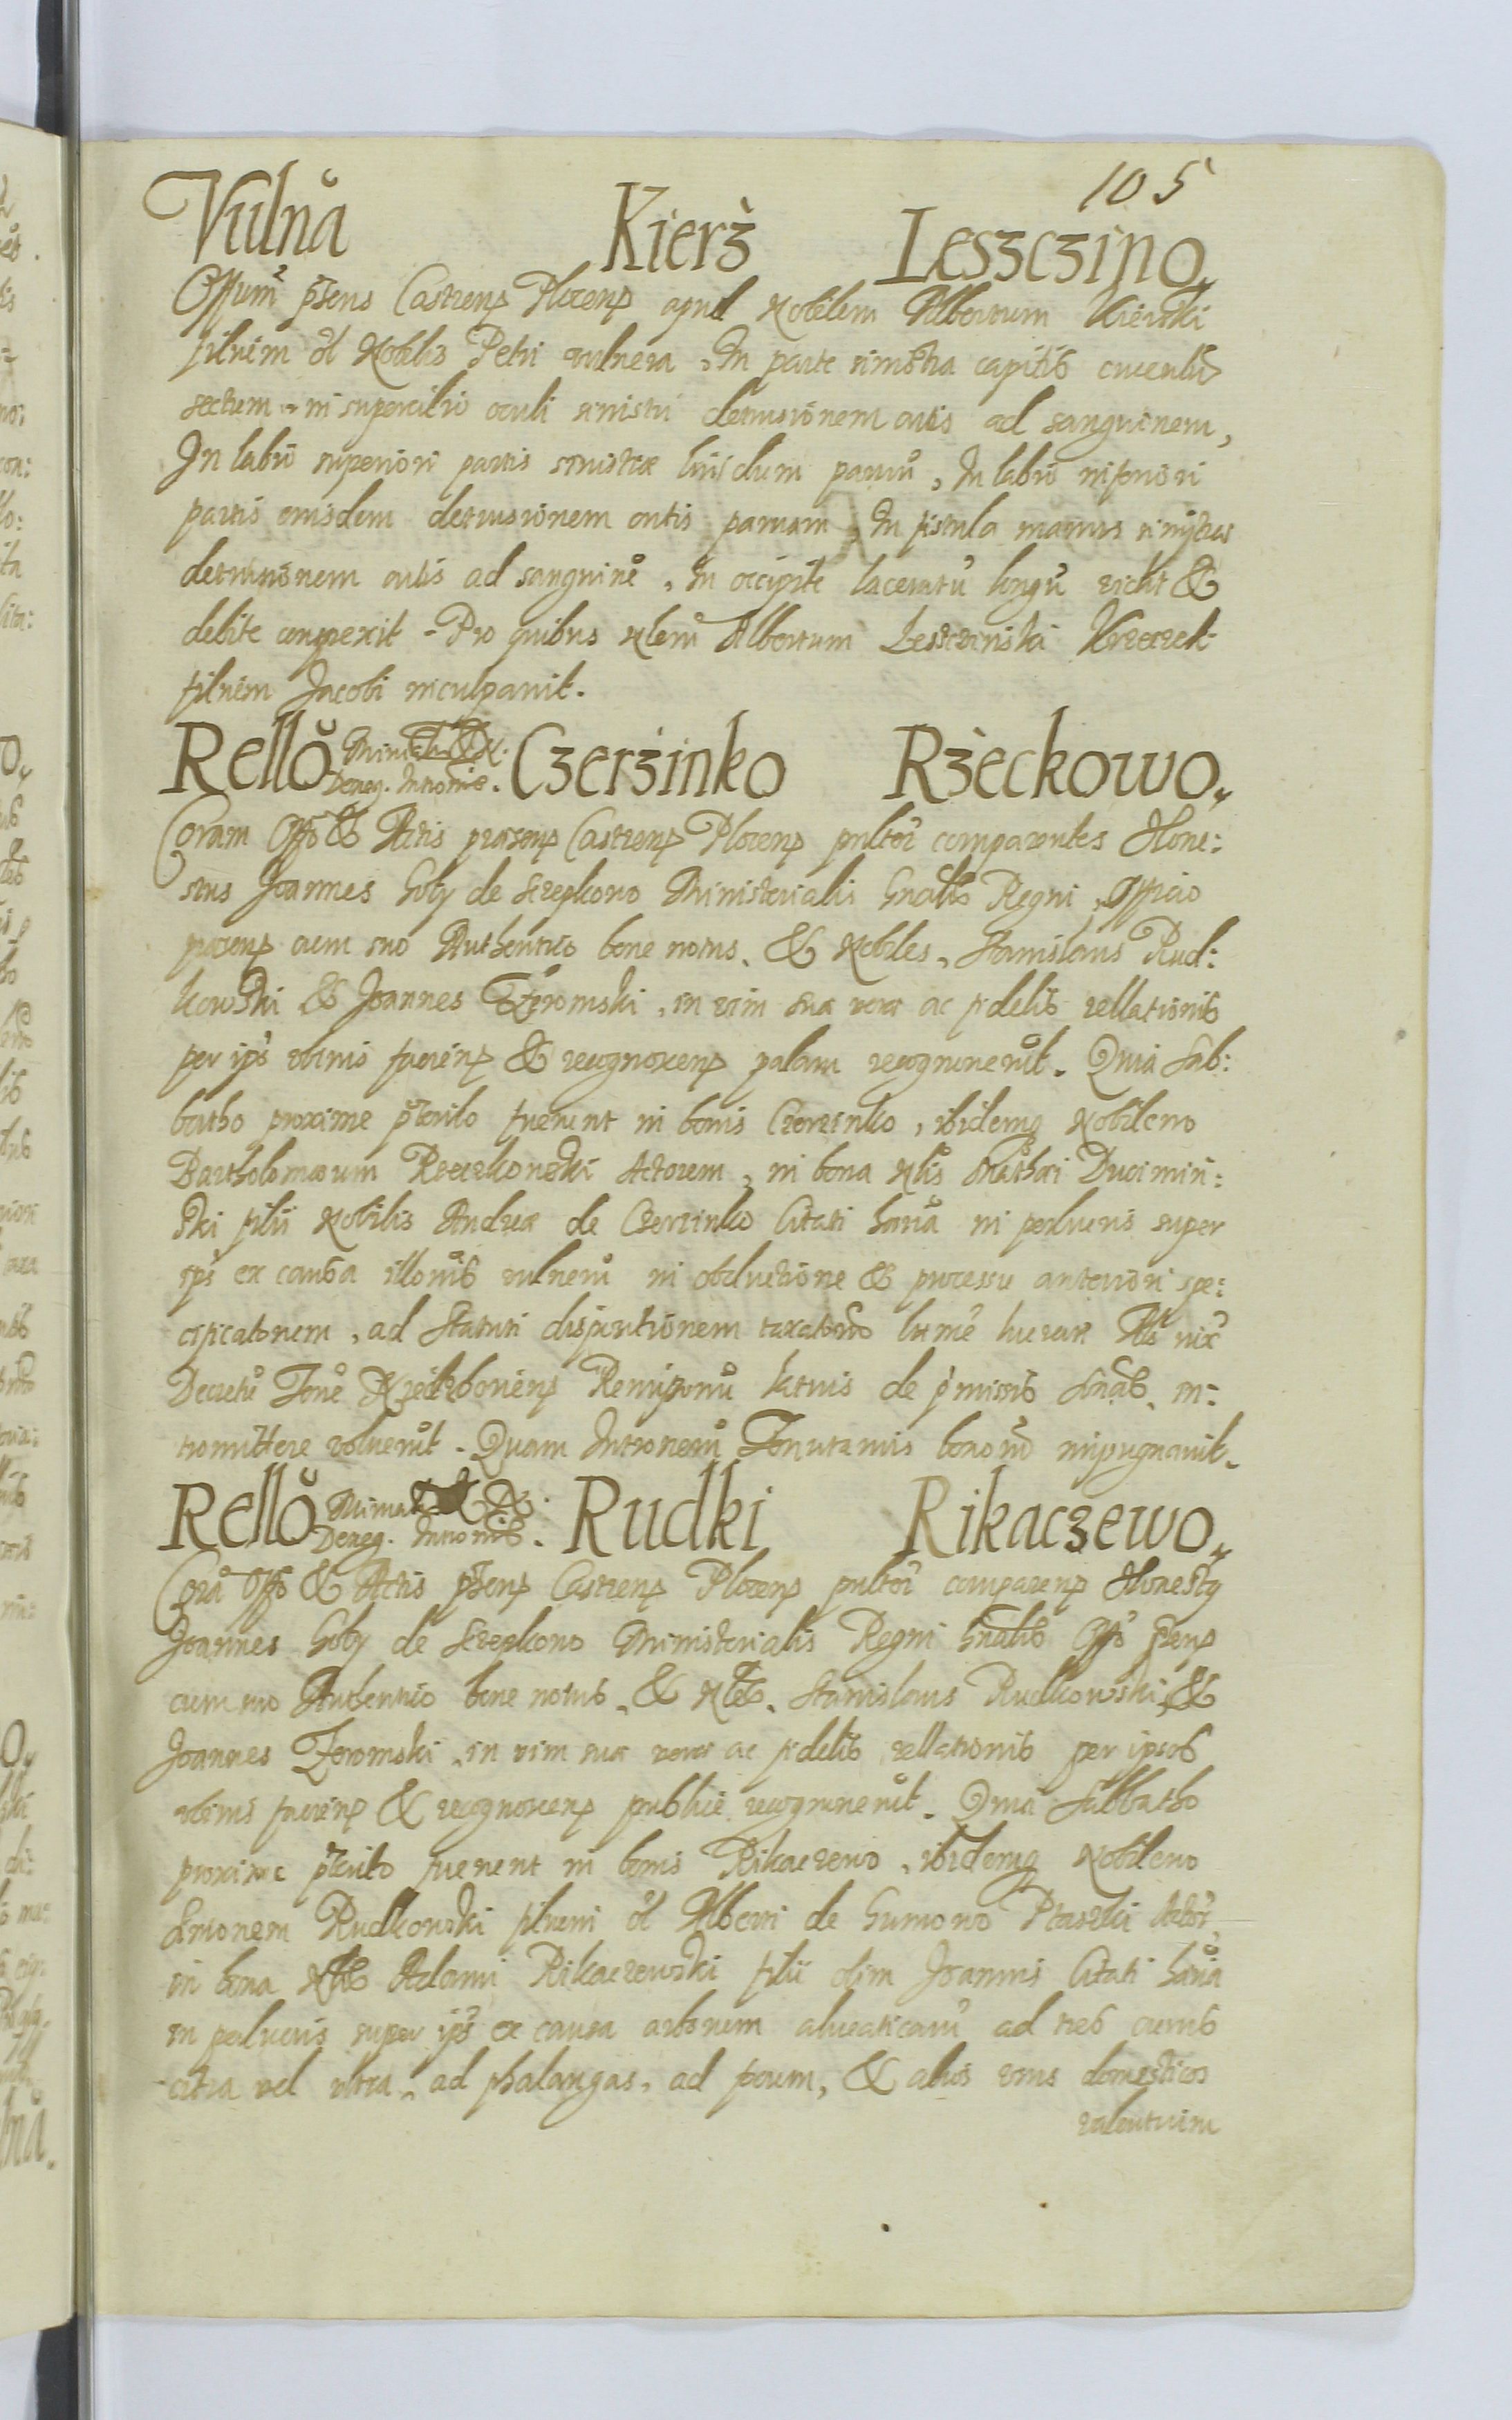 105
Vulnã Kierż Leszczino
Offum pñs Castren Plocen apud Nobilem Albertum Kierski
filium ol Nobilis Petri vulnera, In parte sinistra capitis cruentũ
sectum, in supercilio oculi sinistri detrusionem cutis ad sanguinem,
In labii superiori partis sinistræ lividum parvũ, In labii inferiori
partis eiusdem detrusionem cutis parvam, In fistula manus sinistræ
detrusionem cutis ad sanguinẽ, In occipite laceratũ longũ vidit &
debite conspexit. Pro quibus Nlem Albertum Leszczinski Krzeczek
filium Jacobi inculpavit.
Rellõ Minilis Deneg. Intromis. Czerżinko Rżeckowo
Coram Offo & Actis præsen Castren Plocen psultr comparentes Hone:
stus Joannes Goly de Szepkowo Ministerialis Gnalis Regni, Officio
præsen cum suo Authentico bene notus, & Nobiles, Stanislaus Rud:
kowski & Joannes Zeromski, in vim suæ veræ ac fidelis rellationis
per ipõs obinis facien & recognoscen palam recognoverũt. Quia Sab:
batho proxime pñterito fuerunt in bonis Czerzinko, ibidemq Nobilem
Bartholomæum Rzeczkowski Actorem, in bona Nlis Mathæi Ducimin:
ski filii Nobilis Andreæ de Czerzinko Citati in perlucris super
ipõ ex causa vulnerũ in obductione & processu anteriori spe:
cificatorum, ad Statuti dispositionem taxatorum
Decretũ latius de pmissis in:
tromittere voluerũt. Quam Intromnem Tenutarius bonorũ impugnavit.
Rellõ Minilis Deneg. Intromis. Rudki Rikaczewo
Corã Offo & Actis pñsen Castren Plocen psultr comparen Honestq
Joannes Goly de Szepkowo Ministerialis Regni Gnalis Offo pñsen
cum suo Autentico bene notus, & Nles, Stanislaus Rudkowski, &
Joannes Zeromski, in vim suæ veræ ac fidelis rellationis per ipsos
obinis facien & recognoscen publice recognoverũt. Quia Sabbatho
proxime pñterito fuerunt in bonis Rikaczewo, ibidemq Nobilem
Simonem Rudkowski filium ol Alberti de Gumowo Ptaszki Actor
in bona Nlis Adami Rikaczewski filii olim Joannis Citati
in perlucris super ipõ ex causa arborum alveaticarũ ad tres currus
citra vel ultra, ad phalangas, ad forum, & alios usus domesticos
valentium